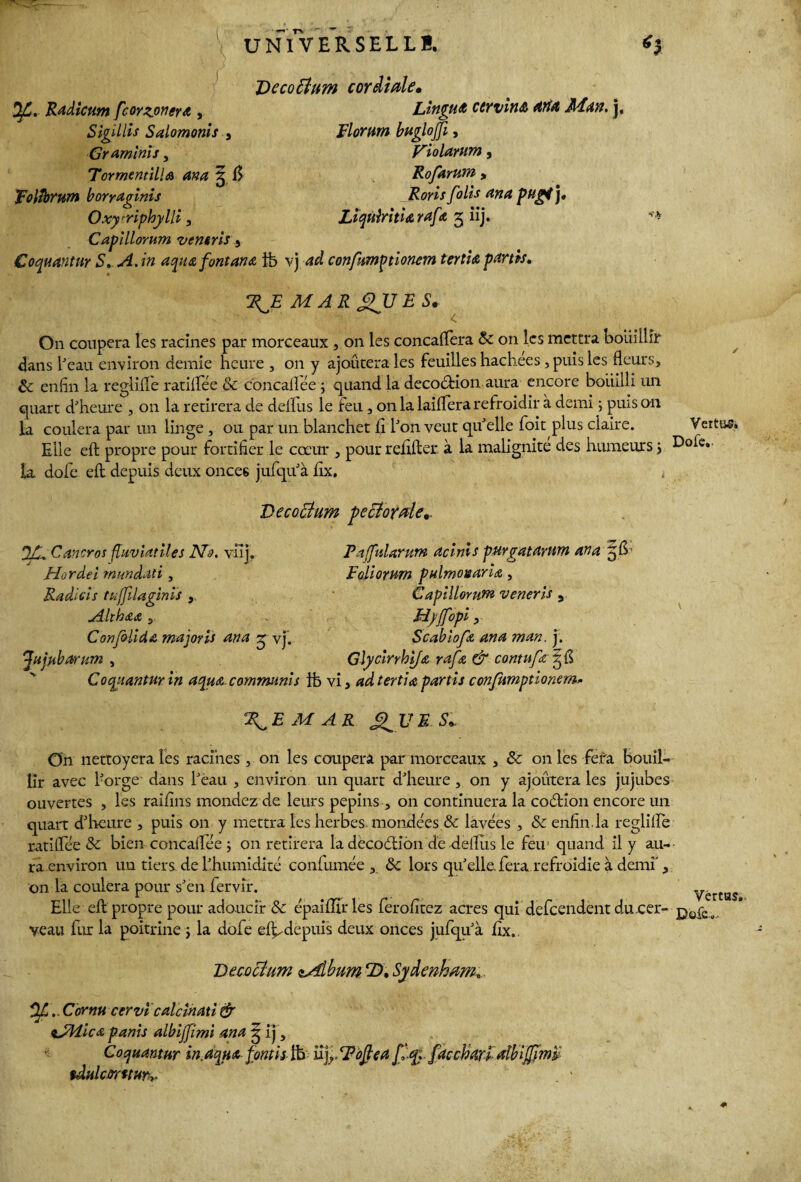 UNIVERSELLE. 63
Decoctum cordiale.
℞. Radicum scorzoneræ,
Sigillis Salomonis,
Graminis,
Tormentillæ ana ℥ ß
Foliorum borraginis
Oxytriphylli,
Capillorum veneris,
Linguæ cervinæ ana Man. j,
Florum buglossi,
Violarum,
Rosarum,
Roris solis ana pug. j.
Liquiritiæ rasæ ʒ iij.
Coquantur S. A. in aquæ fontanæ ℔ vj ad consumptionem tertiæ partis.
REMARQUES.
On coupera les racines par morceaux, on les concassera & on les mettra boüillir
dans l'eau environ demie heure, on y ajoûtera les feuilles hachées, puis les fleurs,
& enfin la reglisse ratissée & concassée; quand la decoction aura encore boüilli un
quart d'heure, on la retirera de dessus le feu, on la laissera refroidir à demi; puis on
la coulera par un linge, ou par un blanchet si l'on veut qu'elle soit plus claire.
Elle est propre pour fortifier le cœur, pour resister à la malignité des humeurs;
la dose est depuis deux onces jusqu'à six.
Vertus.
Dose.
Decoctum pectorale.
℞. Cancros fluviatiles No. viij.
Hordei mundati,
Radicis tussilaginis,
Althææ,
Consolidæ majoris ana ʒ vj.
Jujubarum,
Passularum acinis purgatarum ana ℥ß
Foliorum pulmonariæ,
Capillorum veneris,
Hyssopi,
Scabiosæ ana man. j.
Glycirrhisæ rasæ & contusæ ℥ß
Coquantur in aquæ communis ℔ vi, ad tertiæ partis consumptionem.
REMARQUES.
On nettoyera les racines, on les coupera par morceaux, & on les fera bouil-
lir avec l'orge dans l'eau, environ un quart d'heure, on y ajoûtera les jujubes
ouvertes, les raisins mondez de leurs pepins, on continuera la coction encore un
quart d'heure, puis on y mettra les herbes mondées & lavées, & enfin la reglisse
ratissée & bien concassée; on retirera la decoction de dessus le feu quand il y au-
ra environ un tiers de l'humidité consumée, & lors qu'elle sera refroidie à demi,
on la coulera pour s'en servir.
Elle est propre pour adoucir & épaissir les serositez acres qui descendent du cer-
veau sur la poitrine; la dose est depuis deux onces jusqu'à six.
Vertus.
Dose.
Decoctum Album D. Sydenham.
℞. Cornu cervi calcinati &
Micæ panis albissimi ana ℥ ij,
Coquantur in aquæ fontis ℔ iij. Postea s. q. sacchari albissimi
edulcorstur.